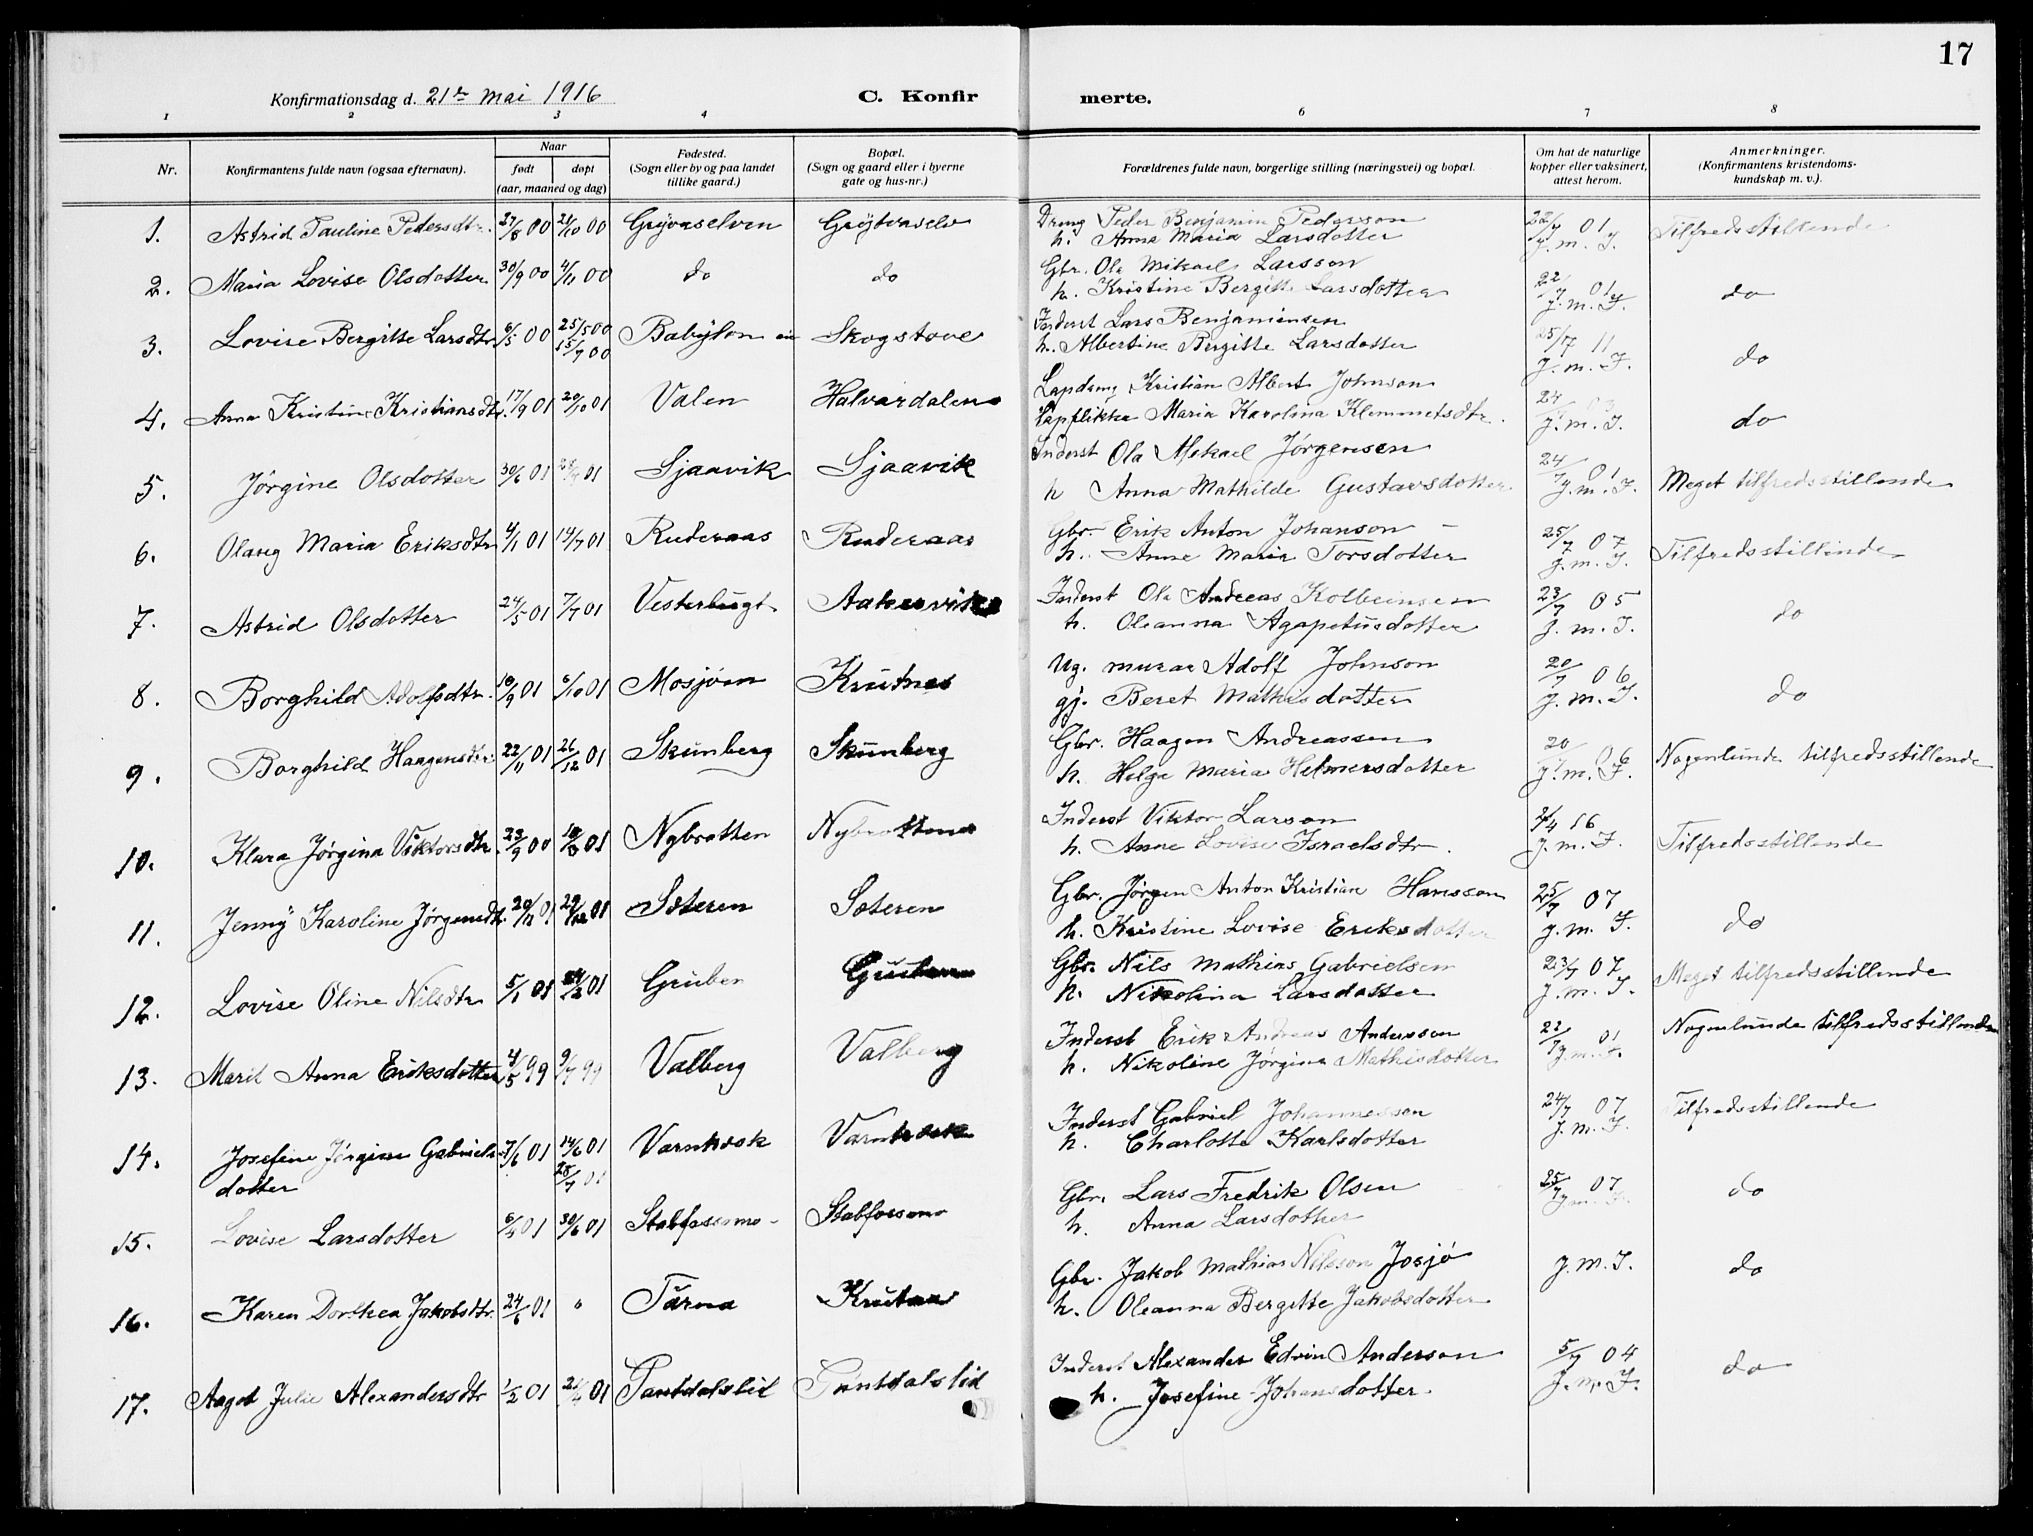 17
Konfirmationsdag d. 21de mai 1916 C. Konfir merte.
1 2 3 4 6 7 8
Nr. Konfirmantens fulde navn (ogsaa efternavn). Naar født døpt (aar, maaned og dag) Fødested. (Sogn eller by og paa landet tillike gaard.) Bopæl. (Sogn og gaard eller i byerne gate og hus-nr.) Forældrenes fulde navn, borgerlige stilling (næringsvei) og bopæl. Om hat de naturlige kopper eller vaksinert, attest herom. Anmerkninger. (Konfirmantens kristendoms-kundskap m. v.).
1. Astrid Pauline Pedersdtr. 27/8 00 21/10 00 Grøvaselven Grøjtvaselv Dreng Peder Benjamin Pederson 22/7 01 Tilfredsstillende
h. Anna Maria Larsdotter J. m. J.
2. Maria Lovise Olsdotter 30/9 00 4/11 00 do do Gbr. Ola Mikael Larsson 22/7 01 do
h. Kristine Bergitte Larsdotter J. m. J.
3. Lovise Bergitte Larsdtr 6/5 00 25/5 00 Babylon Skogstove Inderst Lars Benjaminsen 25/7 11 do
15/7 00 h. Albertine Birgitte Larsdotter J. m. J.
4. Anna Kristine Kristiansdtr. 17/9 01 20/10 01 Valen Halvardalen Lapdreng Kristian Albert Johnson 24 do
Lapflikka Maria Karolina Klemmetsdtr. J. m. J.
5. Jørgine Olsdotter 30/6 01 01 Sjaavik Sjaavik Inderst Ola Mekael Jørgensen 24/7 01 Meget tilfredsstillende
h Anna Mathilde Gustavsdotter J. m. J.
6. Olaug Maria Eriksdtr 4/1 01 14/7 01 Ruderaas Ruderaas Gbr. Erik Anton Johanson 25/7 07 Tilfredsstillende
h. Anne Maria Torsdotter J. m. J.
7. Astrid Olsdotter 24/5 01 7/7 01 Vesterbugt Aakervik Inderst Ola Andreas Kolbeinsen 23/7 05 do
h. Oleanna Agapetusdotter J. m. J.
8. Borghild Adolfsdtr. 18/9 01 6/10 01 Mosjøen Krutnes Ug. murar Adolf Johnson 20/7 06 do
gj. Beret Mathisdotter J. m. J.
9. Borghild Haagensdtr. 22/11 01 26/12 01 Skunberg Skunberg Gbr. Haagen Andreassen 20/7 06 Nogenlunde tilfredsstillende
h. Helga Maria Helmersdotter J. m. J.
10. Klara Jørgina Viktorsdtr. 23/9 00 01 Nybrotten Nybrotten Inderst Viktor Larson 16 Tilfredsstillende
h. Anne Lovise Israelsdtr. J. m. J.
11. Jenny Karoline Jørgensdtr. 20/11 01 29/12 01 Søteren Søteren Gbr. Jørgen Anton Kristian Hansson 25/7 07 do
h. Kristine Lovise Eriksdotter J. m. J.
12. Lovise Oline Nilsdtr 5/1 01 24/2 01 Gruben Gruben Gbr. Nils Mathias Gabrielsen 23/7 07 Meget tilfredsstillende
h. Nikolina Larsdotter J. m. J.
13. Marit Anna Eriksdotter 4/5 99 9/7 99 Valberg Valberg Inderst Erik Andreas Andersson 22/7 01 Nogenlunde tilfredsstillende
h. Nikoline Jørgine Mathisdotter J. m. J.
14. Josefine Jørgine Gabriels- 7/6 01 14/6 01 Varntresk Varntresk Inderst Gabriel Johannesson 24/7 07 Tilfredsstillende
dotter 28/7 01 h. Charlotte Karlsdotter J. m. J.
15. Lovise Larsdotter 6/5 01 30/6 01 Stabfossmo Stabforsmo Gbr. Lars Fredrik Olsen 25/7 07 do
h. Anna Larsdotter J. m. J.
16. Karen Dorthea Jakobsdtr. 24/6 01 " Tärna Krutaa Gbr. Jakob Mathias Nilsson Josjø J. m. J. do
h. Oleanna Bergitte Jakobsdotter
17. Aagot Julie Alexandersdtr 1/2 01 21/4 01 Tantdalslid Tantdalslid Inderst Alexander Edvin Anderson 5/7 04 do
h. Josefine Johansdotter. J. m. J.